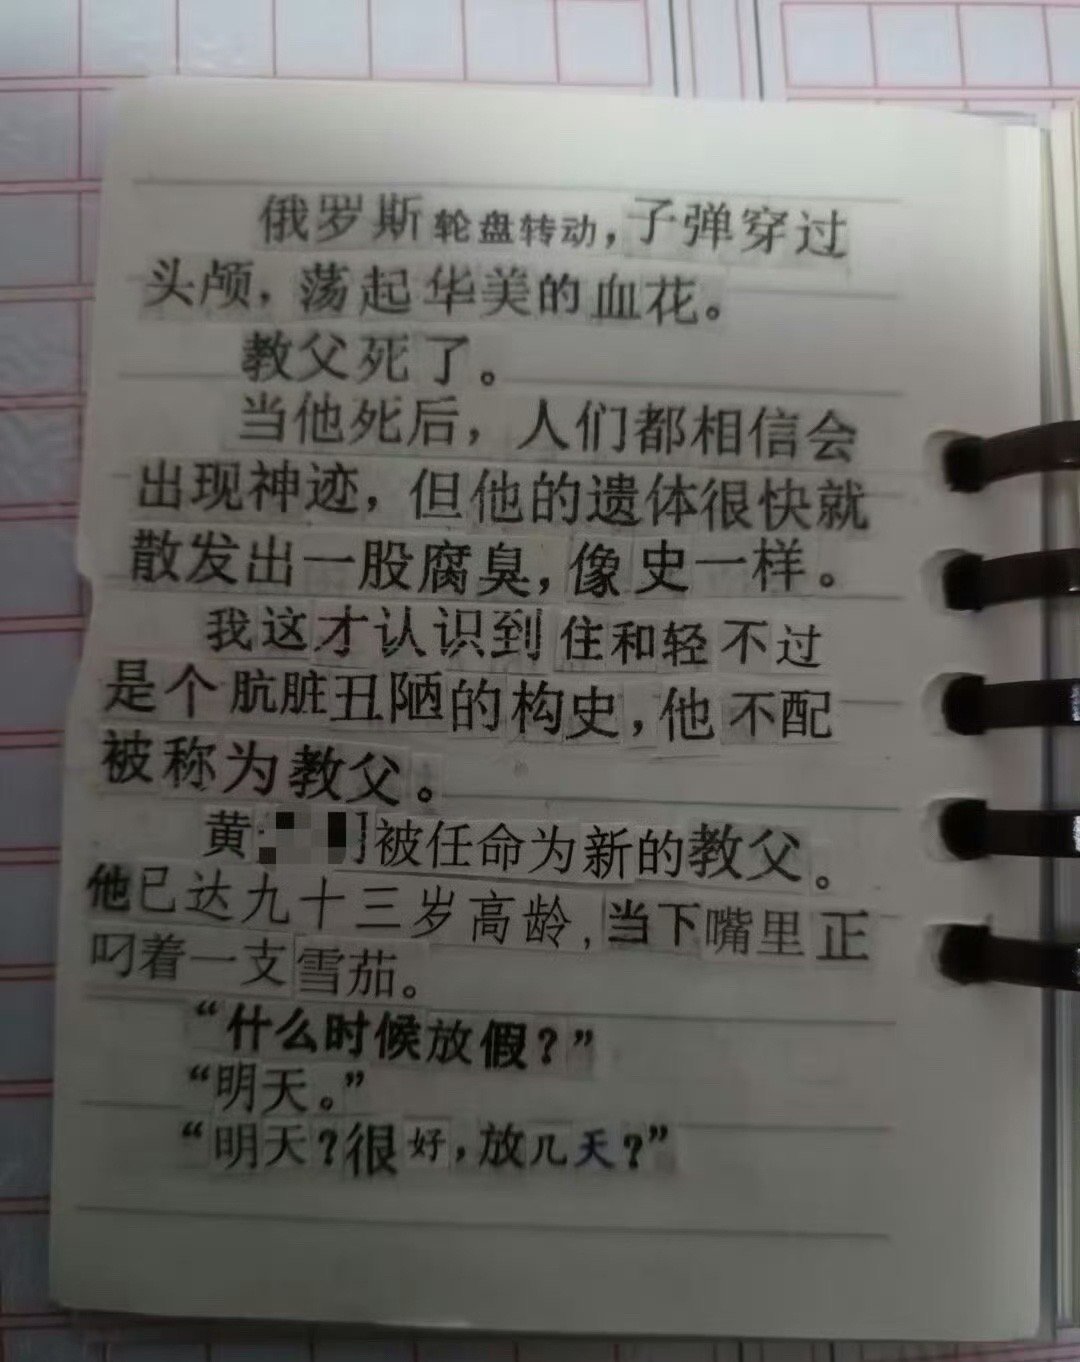 俄罗斯轮盘转动，子弹穿过
头颅，荡起华美的血花。
教父死了。
当他死后，人们都相信会
出现神迹，但他的遗体很快就
散发出一股腐臭，像史一样。
我这才认识到住和轻不过
是个肮脏丑陋的构史，他不配
被称为教父。
黄 被任命为新的教父。
他已达九十三岁高龄，当下嘴里正
叼着一支雪茄。
“什么时候放假？”
“明天。”
“明天？很好，放几天？”